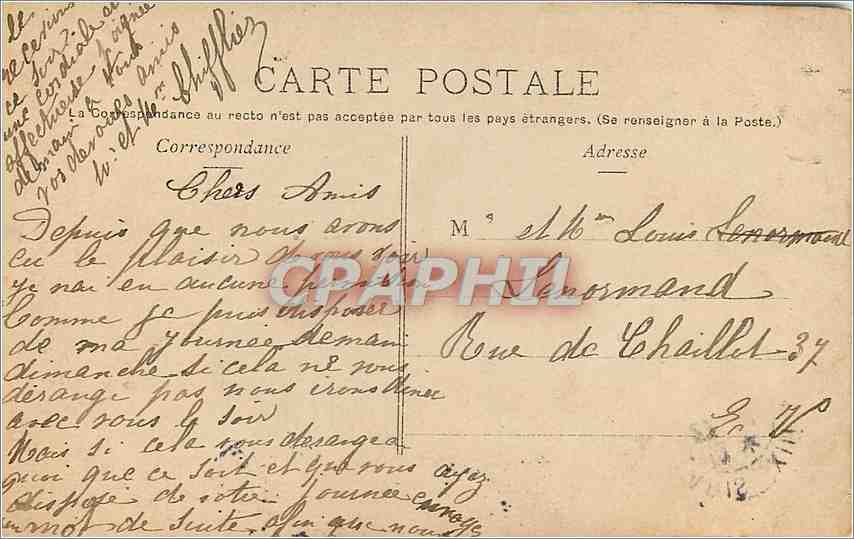 CARTE POSTALE
La Correspondance au recto n'est pas acceptée par tous les pays étrangers. (Se renseigner à la Poste.)
Correspondance
Chers Amis
Depuis que nous avons
eu le plaisir de vous voir
je nai eu aucune
Comme je puis disposer
de ma journée demain
dimanche si cela ne vous
dérange pas nous irons diner
avec vous le soir
Mais si cela vous derange a
quoi que ce soit et que vous ayez
disposé de votre journée envoyez
un mot de suite afin que nous
le
recevions
ce soir
une cordiale et
affectueuse poignée
de main a vous
vos devoués amis
Mr et Me Chifflier
Adresse
M rs et Mme Louis Lenormand
Lenormand
Rue de Chaillot 37
E. V
CPAPHIL